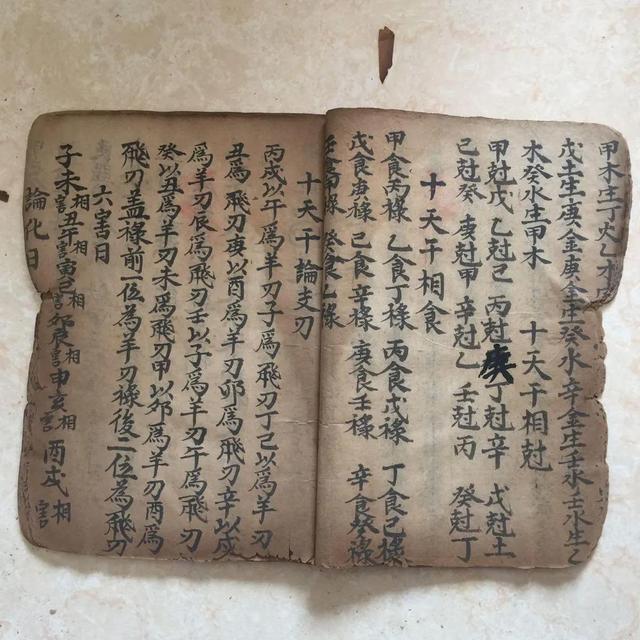 甲木庄丁火乙木
戊土生庚金庚金庄癸水辛金生壬水壬水生乙
木癸水庄甲木 十天干相尅
甲尅戊 乙尅己 丙尅庚 丁尅辛 戊尅土
己尅癸 庚尅甲 辛尅乙 壬尅丙 癸尅丁
十天干相食
甲食丙祿 乙食丁祿 丙食戊祿 丁食己祿
戊食庚祿 己食辛祿 庚食壬祿 辛食癸祿
壬食甲祿 癸食乙祿
十天干論主刃
丙戊以午爲羊刃子爲飛刃丁己以爲羊刃
丑爲飛刃庚以酉爲羊刃卯爲飛刃辛以戌
爲羊刃辰爲飛刃壬以子爲羊刃午爲飛刃
癸以丑爲羊刃未爲飛刃甲以卯爲羊刃酉爲
飛刃盖祿前一位為羊刃祿後二位為飛刃
六害日
子未相害丑午相害寅巳相害卯辰相害申亥相害酉戌相害
論化日